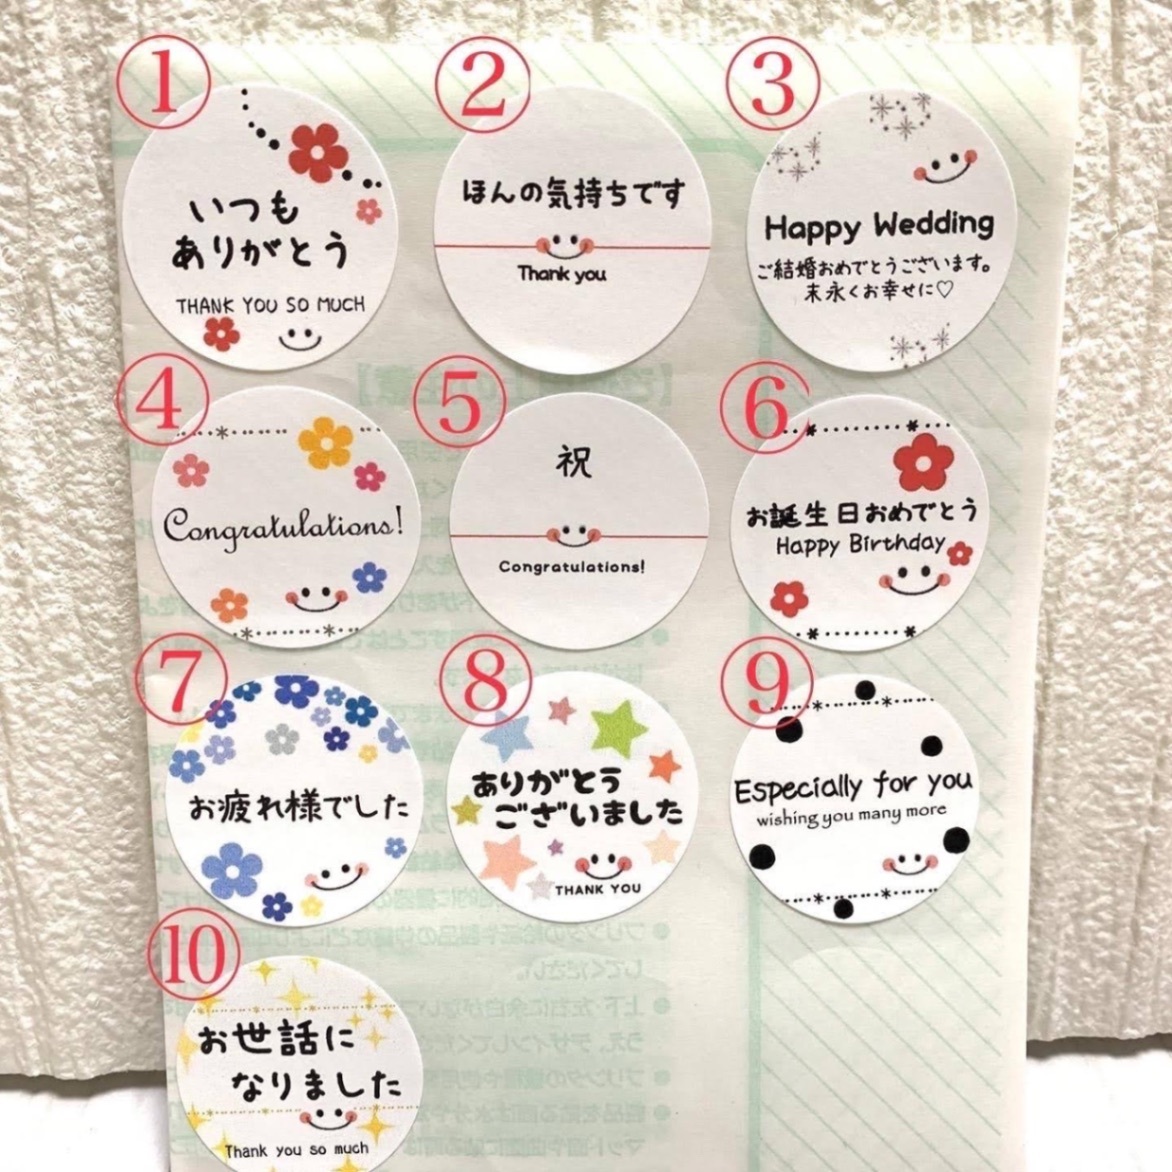 ①
いつも
ありがとう
THANK YOU SO MUCH
②
ほんの気持ちです
Thank you
③
Happy Wedding
ご結婚おめでとうございます。
末永くお幸せに♡
④
Congratulations!
⑤
祝
Congratulations!
⑥
お誕生日おめでとう
Happy Birthday
⑦
お疲れ様でした
⑧
ありがとう
ございました
THANK YOU
⑨
Especially for you
wishing you many more
⑩
お世話に
なりました
Thank you so much